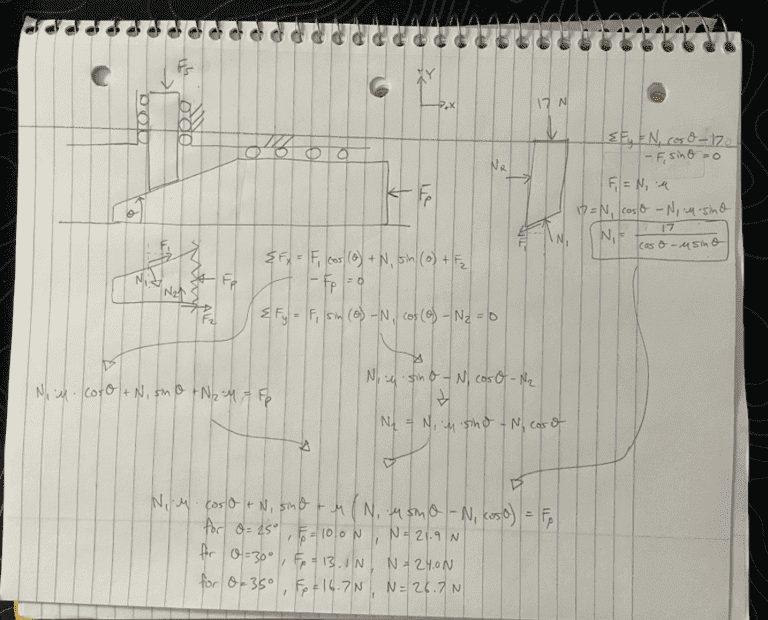 F_s
Y
x
F_p
θ
17 N
N_R
F_1
N_1
ΣF_y = N_1 cosθ - 17
- F_1 sinθ = 0
F_1 = N_1 · μ
17 = N_1 cosθ - N_1 · μ · sinθ
N_1 = 17 / (cosθ - μ sinθ)
F_1
N_1
N_2
F_p
F_2
ΣF_x = F_1 cos(θ) + N_1 sin(θ) + F_2
- F_p = 0
ΣF_y = F_1 sin(θ) - N_1 cos(θ) - N_2 = 0
N_1 · μ · cosθ + N_1 sinθ + N_2 · μ = F_p
N_1 · μ · sinθ - N_1 cosθ - N_2
N_2 = N_1 · μ · sinθ - N_1 cosθ
N_1 · μ · cosθ + N_1 sinθ + μ (N_1 · μ sinθ - N_1 cosθ) = F_p
for θ = 25°, F_p = 10.0 N, N = 21.9 N
for θ = 30°, F_p = 13.1 N, N = 24.0 N
for θ = 35°, F_p = 16.7 N, N = 26.7 N